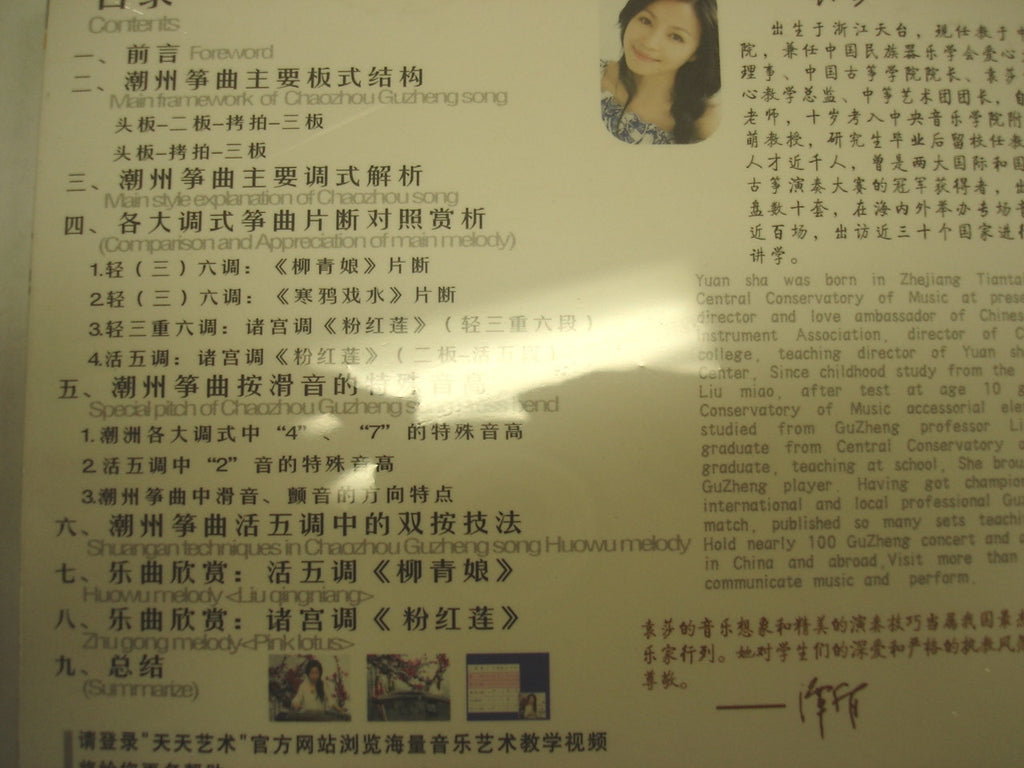 目录
Contents
一、前言 Foreword
二、潮州筝曲主要板式结构
Main framework of Chaozhou Guzheng song
头板-二板-拷拍-三板
头板-拷拍-三板
三、潮州筝曲主要调式解析
Main style explanation of Chaozhou song
四、各大调式筝曲片断对照赏析
(Comparison and Appreciation of main melody)
1.轻（三）六调：《柳青娘》片断
2.轻（三）六调：《寒鸦戏水》片断
3.轻三重六调：诸宫调《粉红莲》（轻三重六段）
4.活五调：诸宫调《粉红莲》（二板-活五段）
五、潮州筝曲按滑音的特殊音高
Special pitch of Chaozhou Guzheng bend
1.潮洲各大调式中“4”、“7”的特殊音高
2.活五调中“2”音的特殊音高
3.潮州筝曲中滑音、颤音的方向特点
六、潮州筝曲活五调中的双按技法
Shuangan techniques in Chaozhou Guzheng song Huowu melody
七、乐曲欣赏：活五调《柳青娘》
Huowu melody <Liu qingniang>
八、乐曲欣赏：诸宫调《粉红莲》
Zhu gong melody<Pink lotus>
九、总结
(Summarize)
请登录"天天艺术"官方网站浏览海量音乐艺术教学视频
出生于浙江天台，现任教于
院，兼任中国民族器乐学会爱心
理事、中国古筝学院院长、袁莎
心教学总监、中筝艺术团团长，自
老师，十岁考入中央音乐学院附
萌教授，研究生毕业后留校任教
人才近千人，曾是两大国际和国
古筝演奏大赛的冠军获得者，出
盘数十套，在海内外举办专场
近百场，出访近三十个国家进行
讲学。
Yuan sha was born in Zhejiang Tianta
Central Conservatory of Music at prese
director and love ambassador of Chines
instrument Association, director of C
college, teaching director of Yuan sh
Center, Since childhood study from the
Liu miao, after test at age 10 g
Conservatory of Music accessorial ele
studied from GuZheng professor Li
graduate from Central Conservatory o
graduate, teaching at school, She brou
GuZheng player, Having got champion
international and local professional Guz
match, published so many sets teachi
Hold nearly 100 GuZheng concert and a
in China and abroad,Visit more than
communicate music and perform.
袁莎的音乐想象和精美的演奏技巧当属我国最杰
乐家行列。她对学生们的深爱和严格的执教风
尊敬。